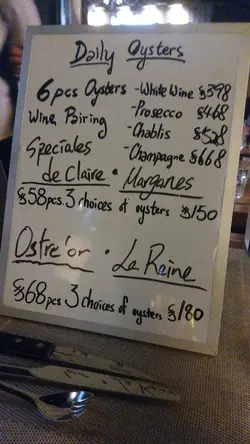 Daily Oysters
6pcs Oysters - White Wine $398
Wine Pairing - Prosecco $468
- Chablis $528
Speciales - Champagne $668
de Claire • Marganes
$58pcs. 3 choices of oysters $150
Ostre'or • La Reine
$68pcs 3 choices of oysters $180